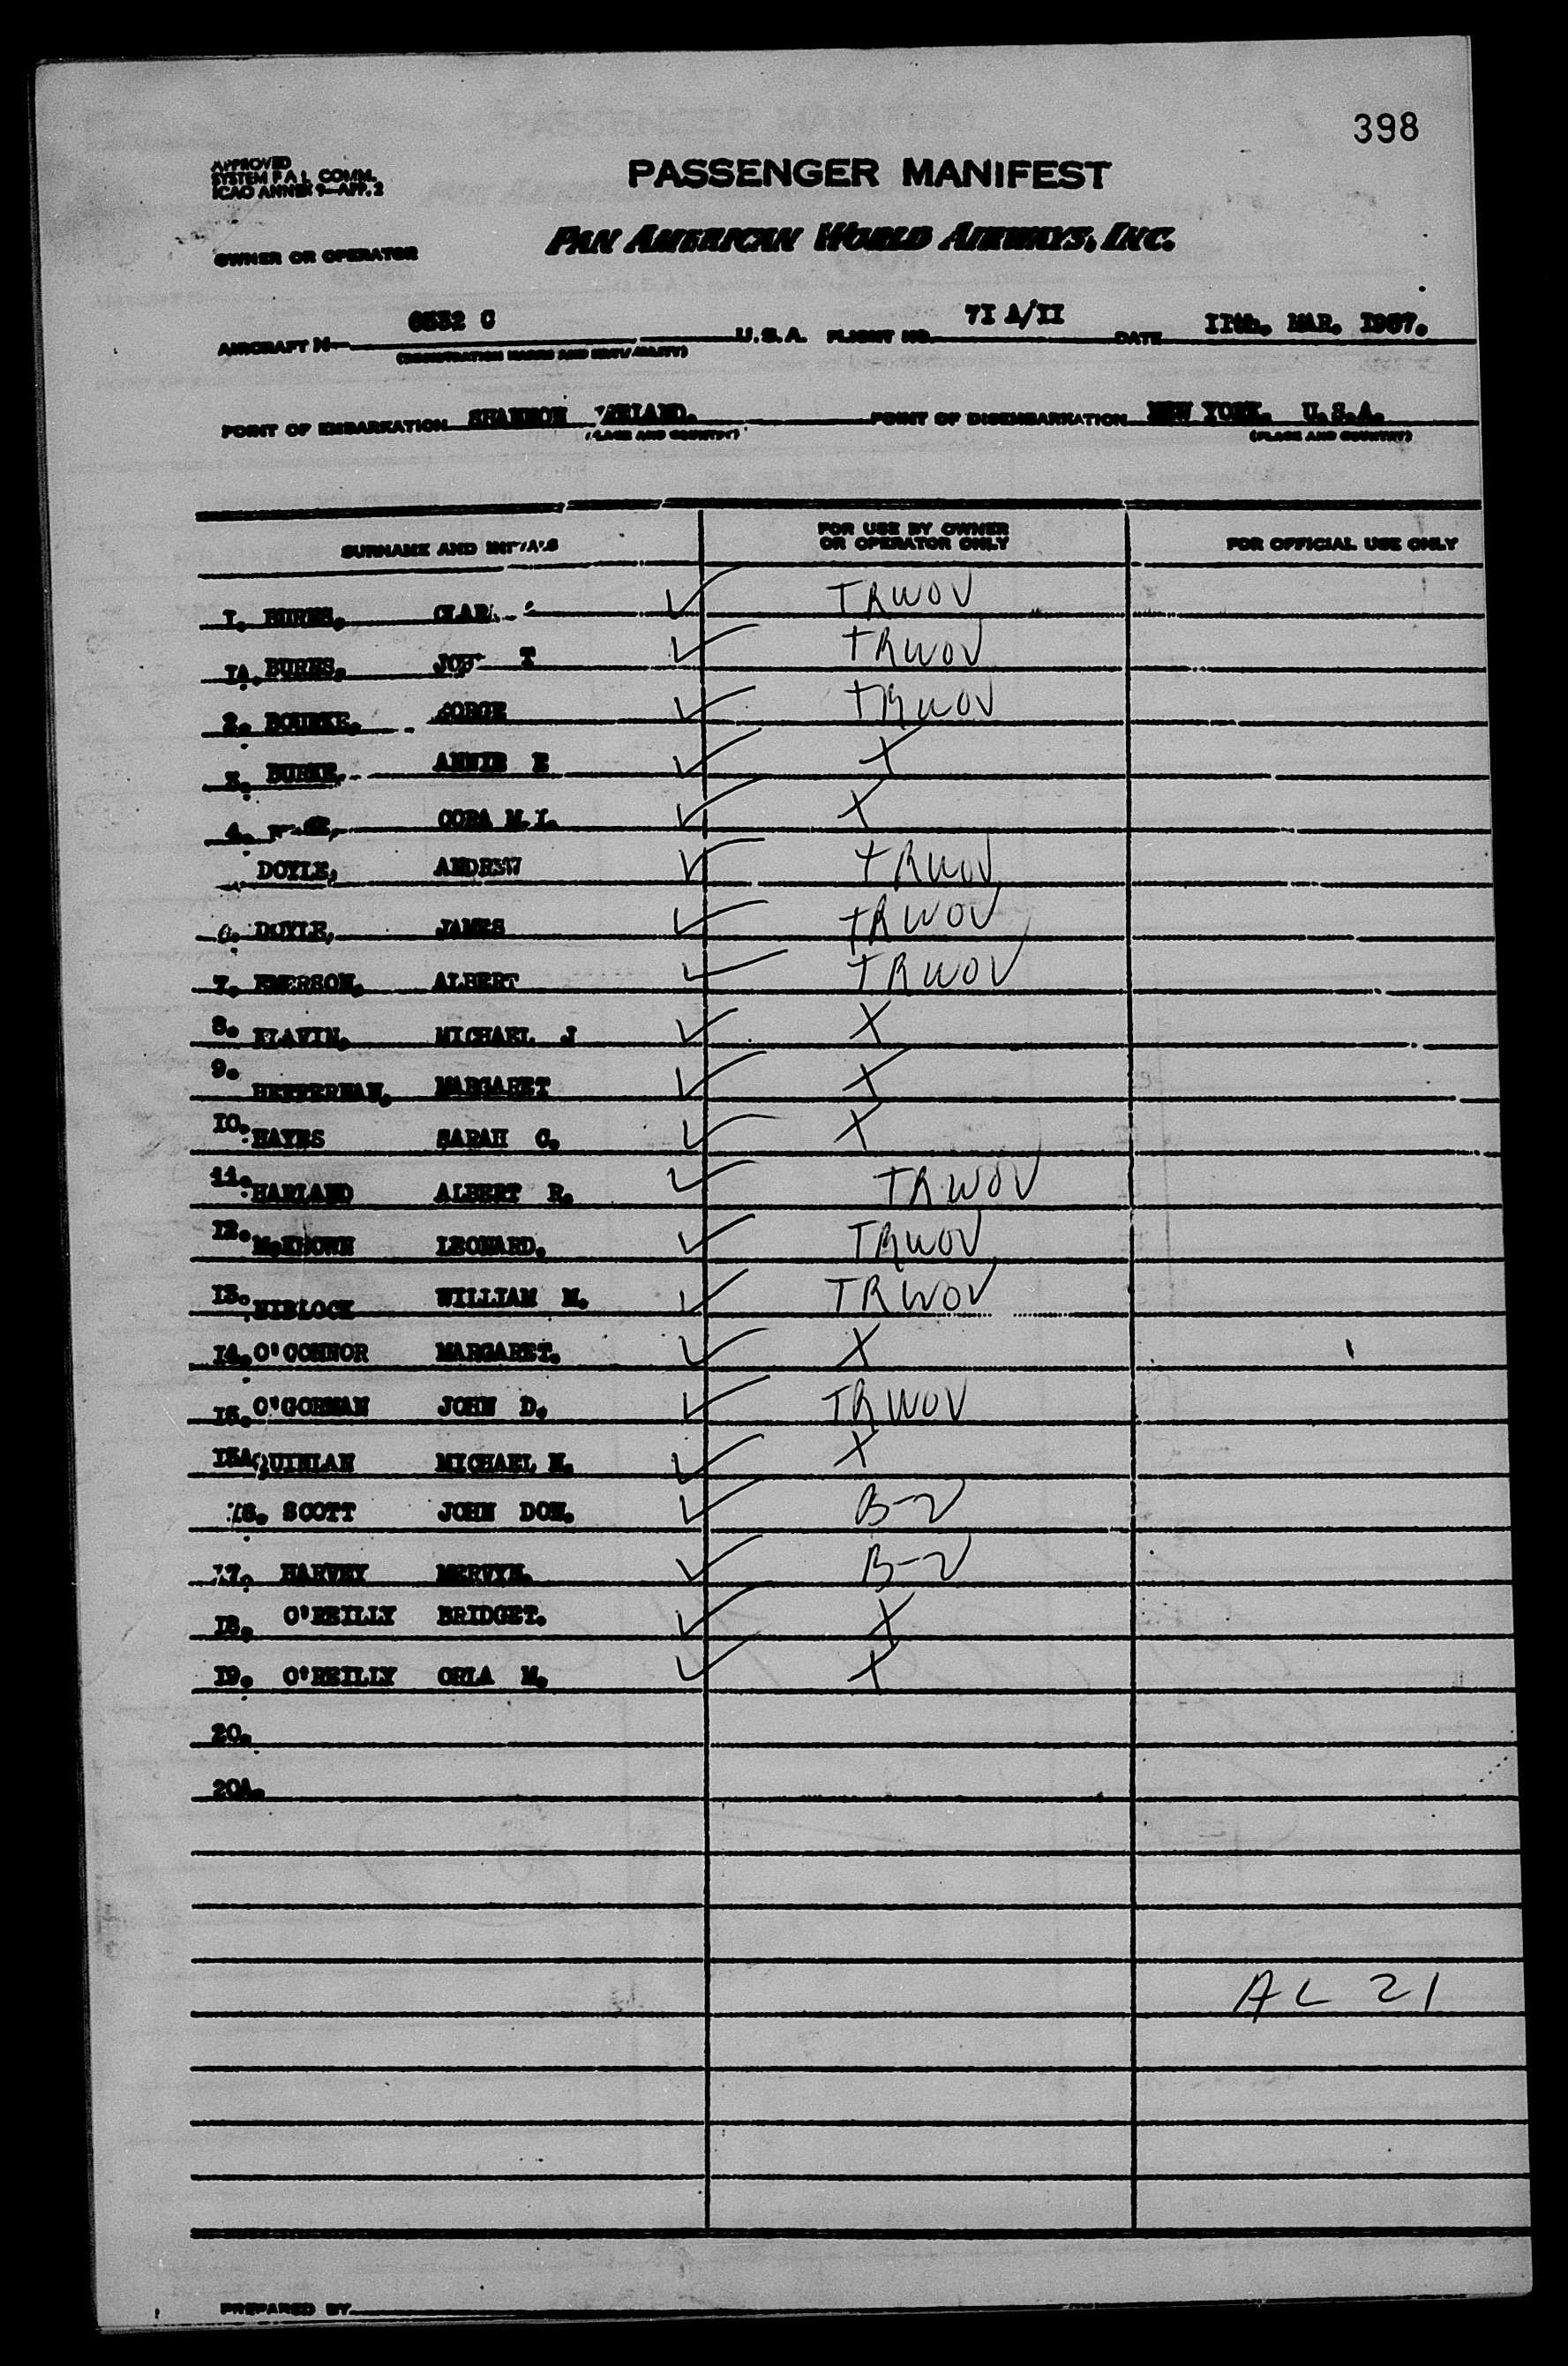 398
APPROVED
SYSTEM F A L COMM.
ICAO ANNEX 9—APP. 2
PASSENGER MANIFEST
OWNER OR OPERATOR
PAN AMERICAN WORLD AIRWAYS, INC.
AIRCRAFT N— 6532 C U.S.A. FLIGHT NO. 7I A/II DATE IIth. MAR. 1957.
(REGISTRATION MARKS AND NATIONALITY)
POINT OF EMBARKATION SHANNON IRELAND. POINT OF DISEMBARKATION NEW YORK. U.S.A.
(PLACE AND COUNTRY) (PLACE AND COUNTRY)
SURNAME AND INITIALS FOR USE BY OWNER OR OPERATOR ONLY FOR OFFICIAL USE ONLY
I. BURNS, ✓ TRWOV
IA. BURNS, T ✓ TRWOV
2. BOURKE, ✓ TRWOV
3. BURKE, ANNIE E ✓ X
4. CORA M.I. ✓ X
DOYLE, ANDREW ✓ TRWOV
6. DOYLE, JAMES ✓ TRWOV
7. EMERSON, ALBERT ✓ TRWOV
8. MICHAEL J ✓ X
9. HEFFERNAN, MARGARET ✓ X
IO. HAYES SARAH C. ✓ X
11. HARLAND ALBERT R. ✓ TRWOV
I2. McKEOWN LEONARD. ✓ TRWOV
I3. NIBLOCK WILLIAM M. ✓ TRWOV
I4. O'CONNOR MARGARET. ✓ X
I5. O'GORMAN JOHN D. ✓ TRWOV
I5A QUINLAN MICHAEL N. ✓ X
I6. SCOTT JOHN DOM. ✓ B-2
I7. HARVEY MERVYN. ✓ B-2
I8. O'REILLY BRIDGET. ✓ X
I9. O'REILLY ORLA M. ✓ X
20.
20A.
AL 21
PREPARED BY